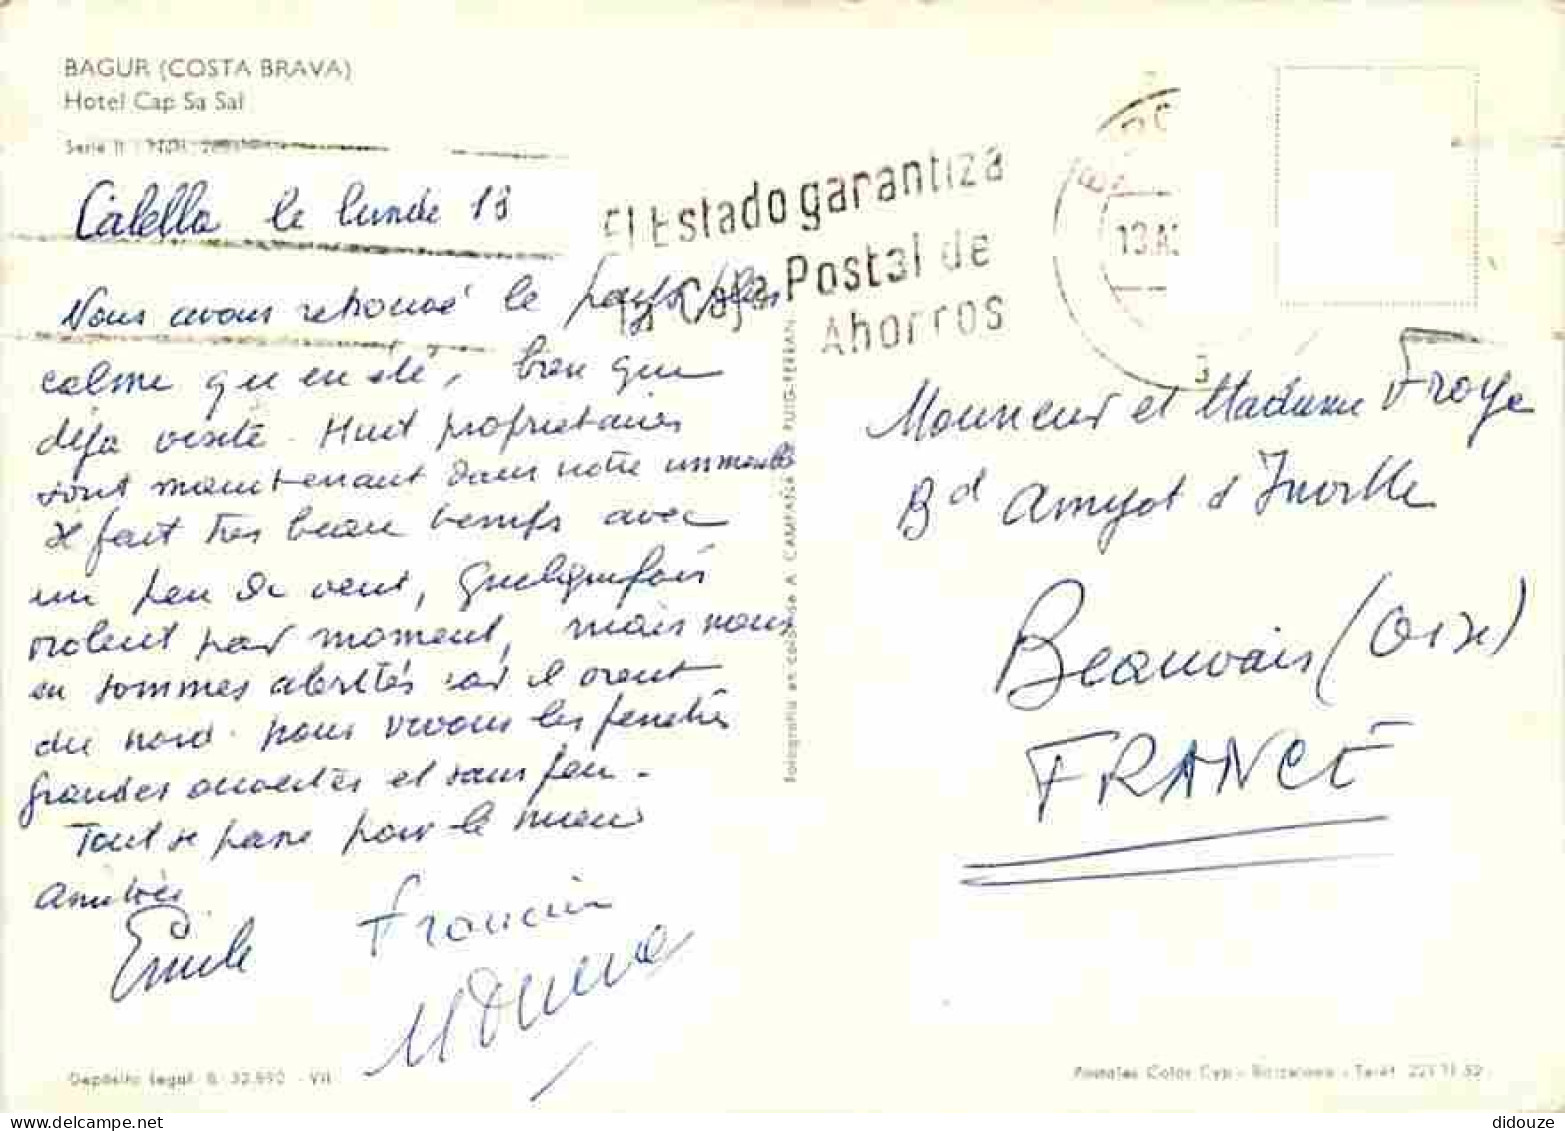 BAGUR (COSTA BRAVA)
Hotel Cap Sa Sal
Serie II
Calella le lundi 13
Nous avons retrouvé le pays plus
calme qu'en été, bien que
déja visité. Huit propriétaires
sont maintenant dans notre immeuble
Il fait très beau temps avec
un peu de vent, quelquefois
violent par moment, mais nous
en sommes abrités car il vient
du nord. nous vivons les fenêtres
grandes ouvertes et sans feu.
Tout se passe pour le mieux
Amitiés
Emile
Francine
El Estado garantiza
la Caja Postal de
Ahorros
13 A
Fotografía en colores A. CAMPAÑÁ PUIG-FERRAN
Monsieur et Madame Froye
Bd Amyot d'Inville
Beauvais (Oise)
FRANCE
Depósito Legal B. 32.690 - VII
Postales Color Cyp - Barcelona - Teléf. 221 11 52
didouze